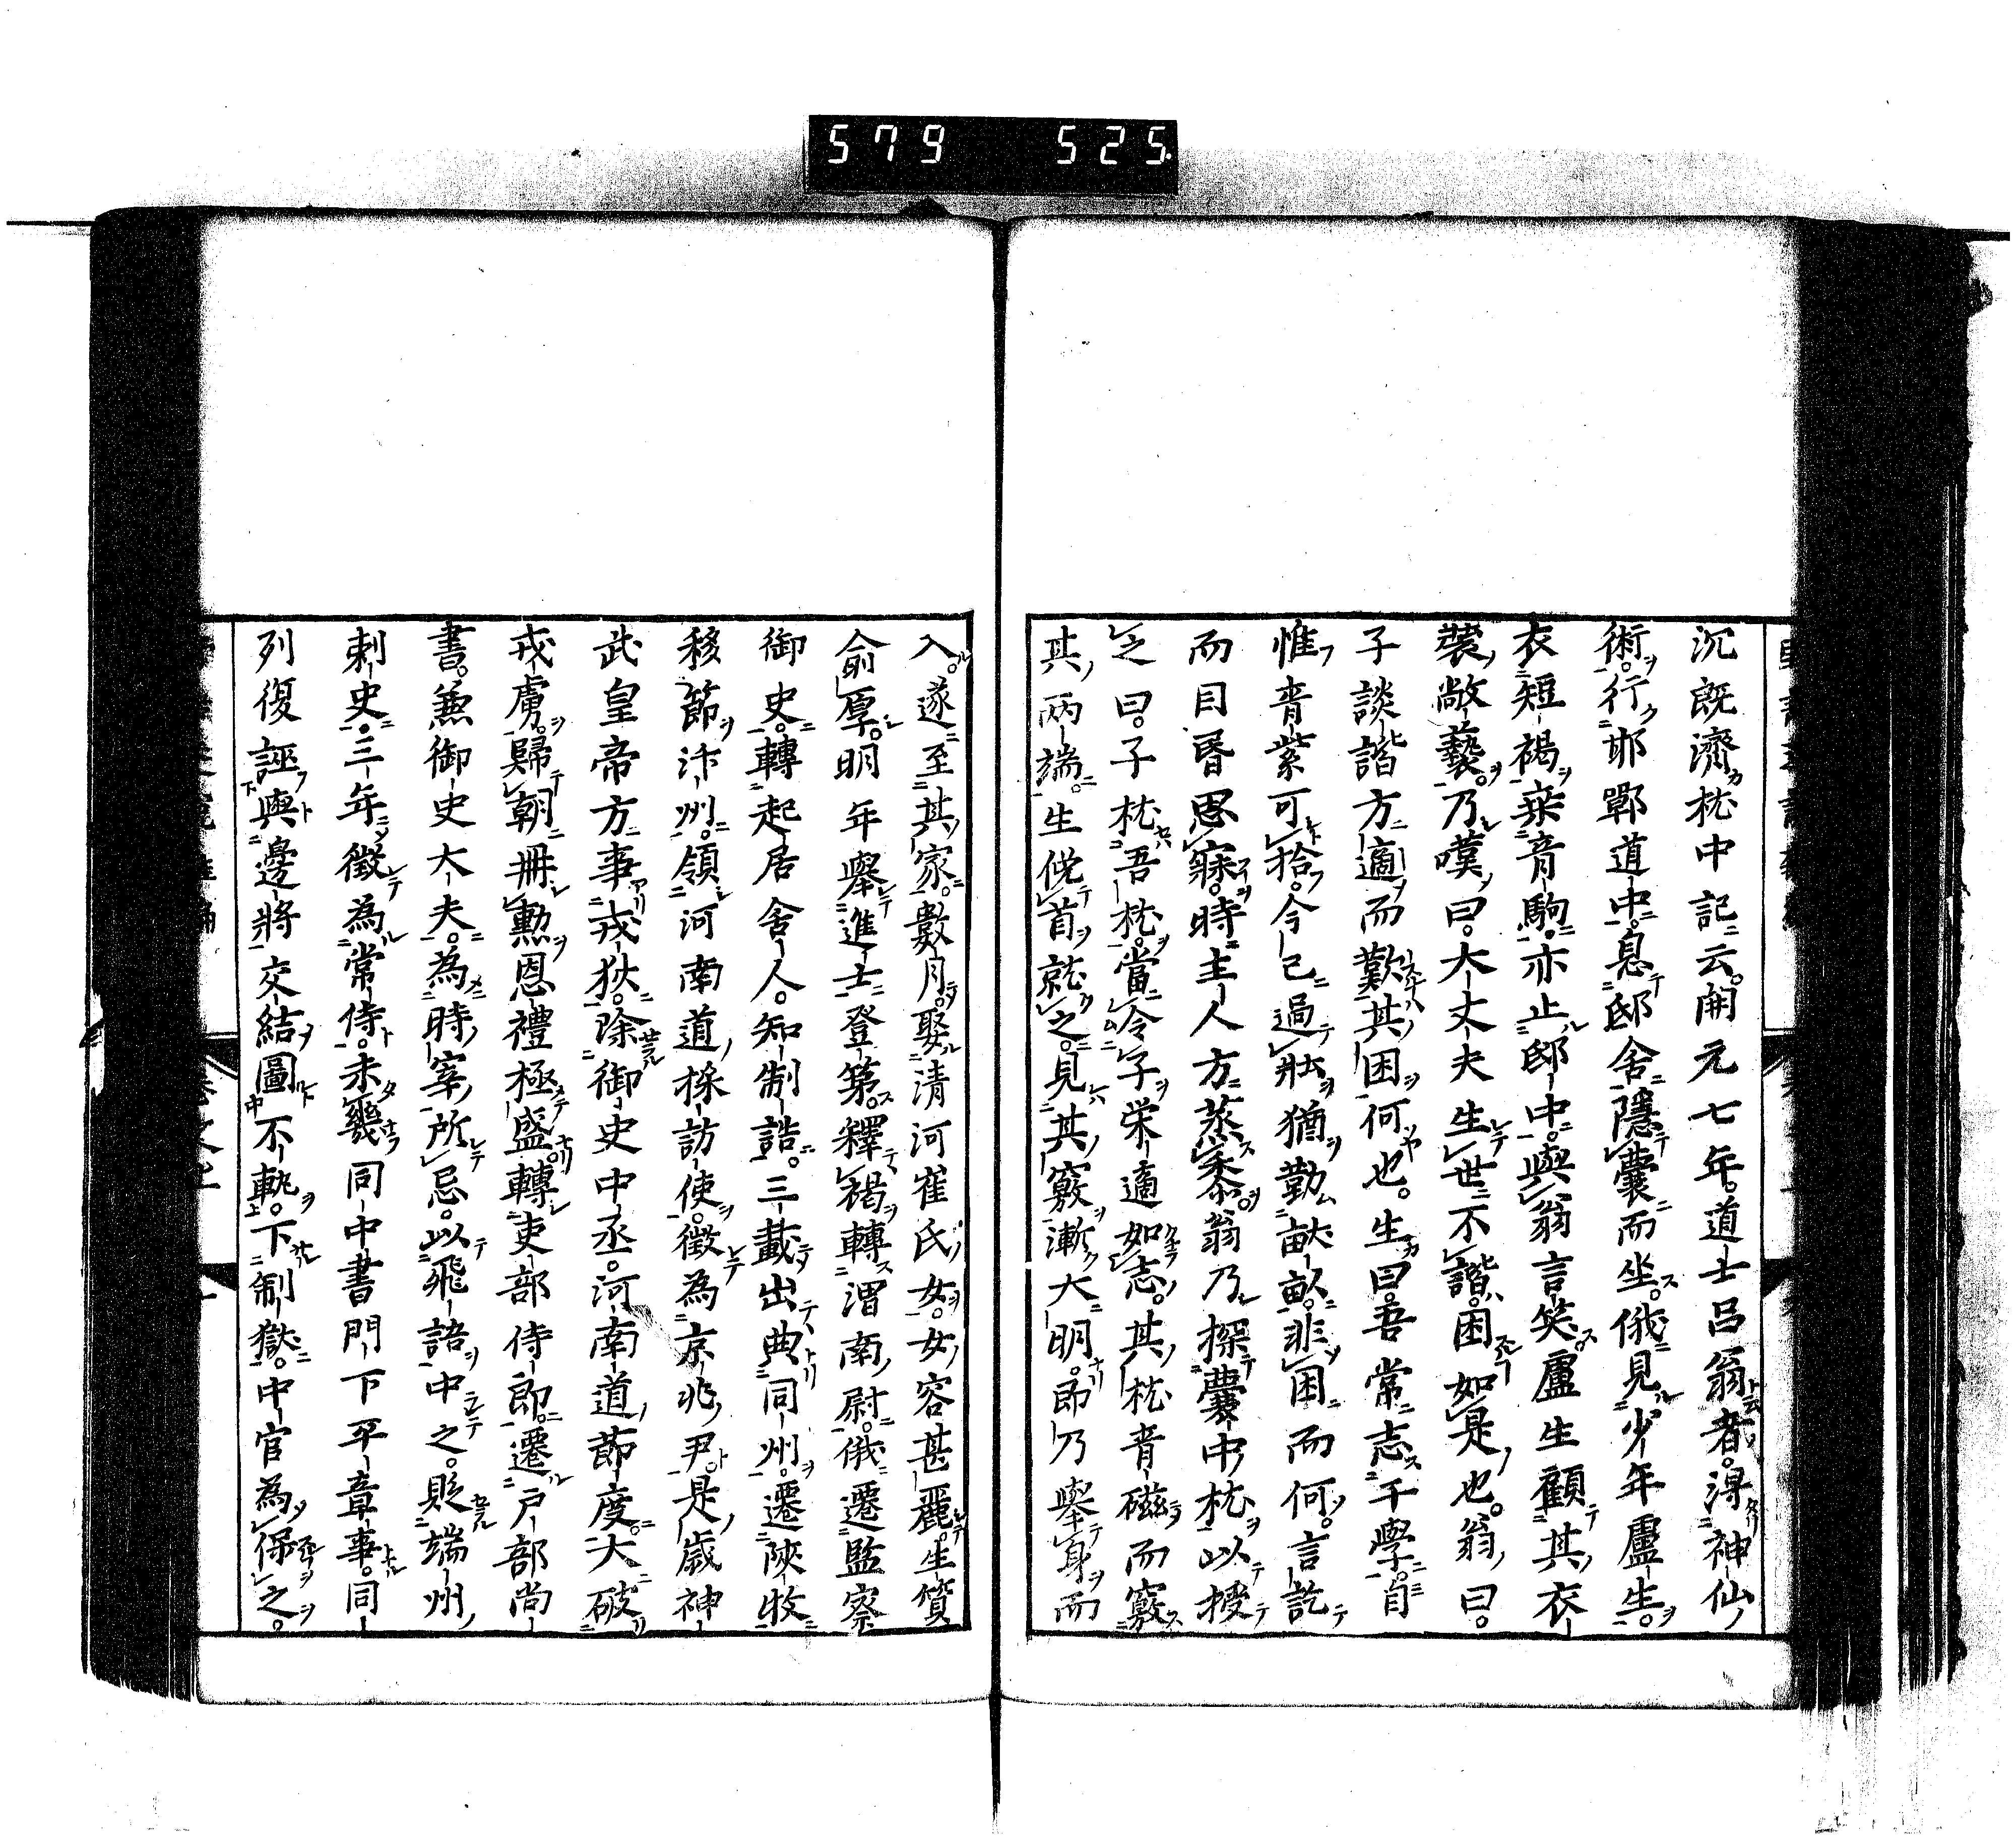 579 525
沉既濟枕中記云。開元七年。道士呂翁者。得神仙
術。行邯鄲道中。息邸舍隱囊而坐。俄見少年盧生。
衣短褐乘青駒。亦止邸中。與翁言笑盧生顧其衣
裝敞䙝。乃嘆曰。大丈夫生世不諧。困如是也。翁曰。
子談諧方適而歎其困何也。生曰。吾常志于學。自
惟青紫可拾。今已過壯猶勤畎畝。非困而何。言訖
而目昏思寐。時主人方蒸黍。翁乃探囊中枕以授
之曰。子枕吾枕。當令子栄適如志。其枕青磁而竅
其兩端。生俛首就之。見其竅漸大明。即乃舉身而
入。遂至其家。數月。娶清河崔氏女。女容甚麗。生質
俞厚。明年舉進士登第。釋褐轉渭南尉。俄遷監察
御史。轉起居舍人。知制誥。三載出典同州。遷陝牧
移節汴州。領河南道採訪使。徵為京兆尹。是歲神
武皇帝方事戎狄。除御史中丞。河南道節度。大破
戎虜。歸朝冊勲恩禮極盛。轉吏部侍郎。遷戶部尚
書。兼御史大夫。為時宰所忌。以飛語中之。貶端州
刺史。三年徵為常侍。未幾同中書門下平章事。同
列復誣與邊將交結圖不軌。下制獄。中官為保之。